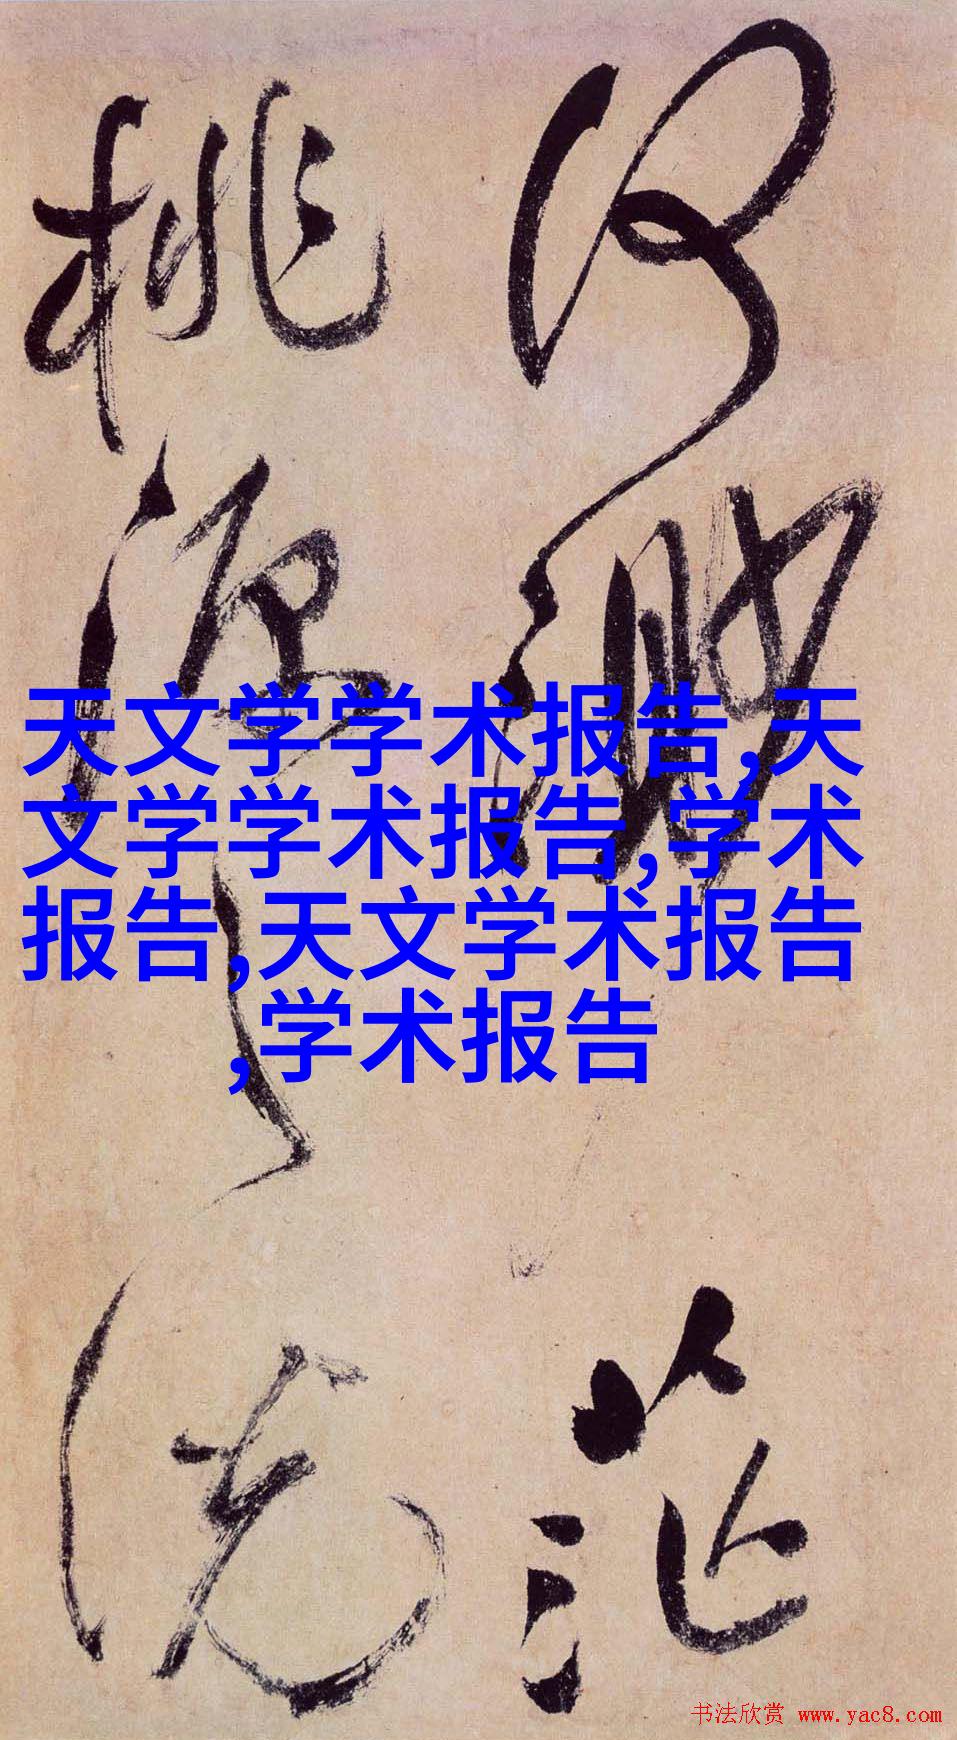 何渺茫
桃源之說
天文学学术报告,天
文学学术报告,学术
报告,天文学术报告
,学术报告
书法欣赏 www.yac8.com